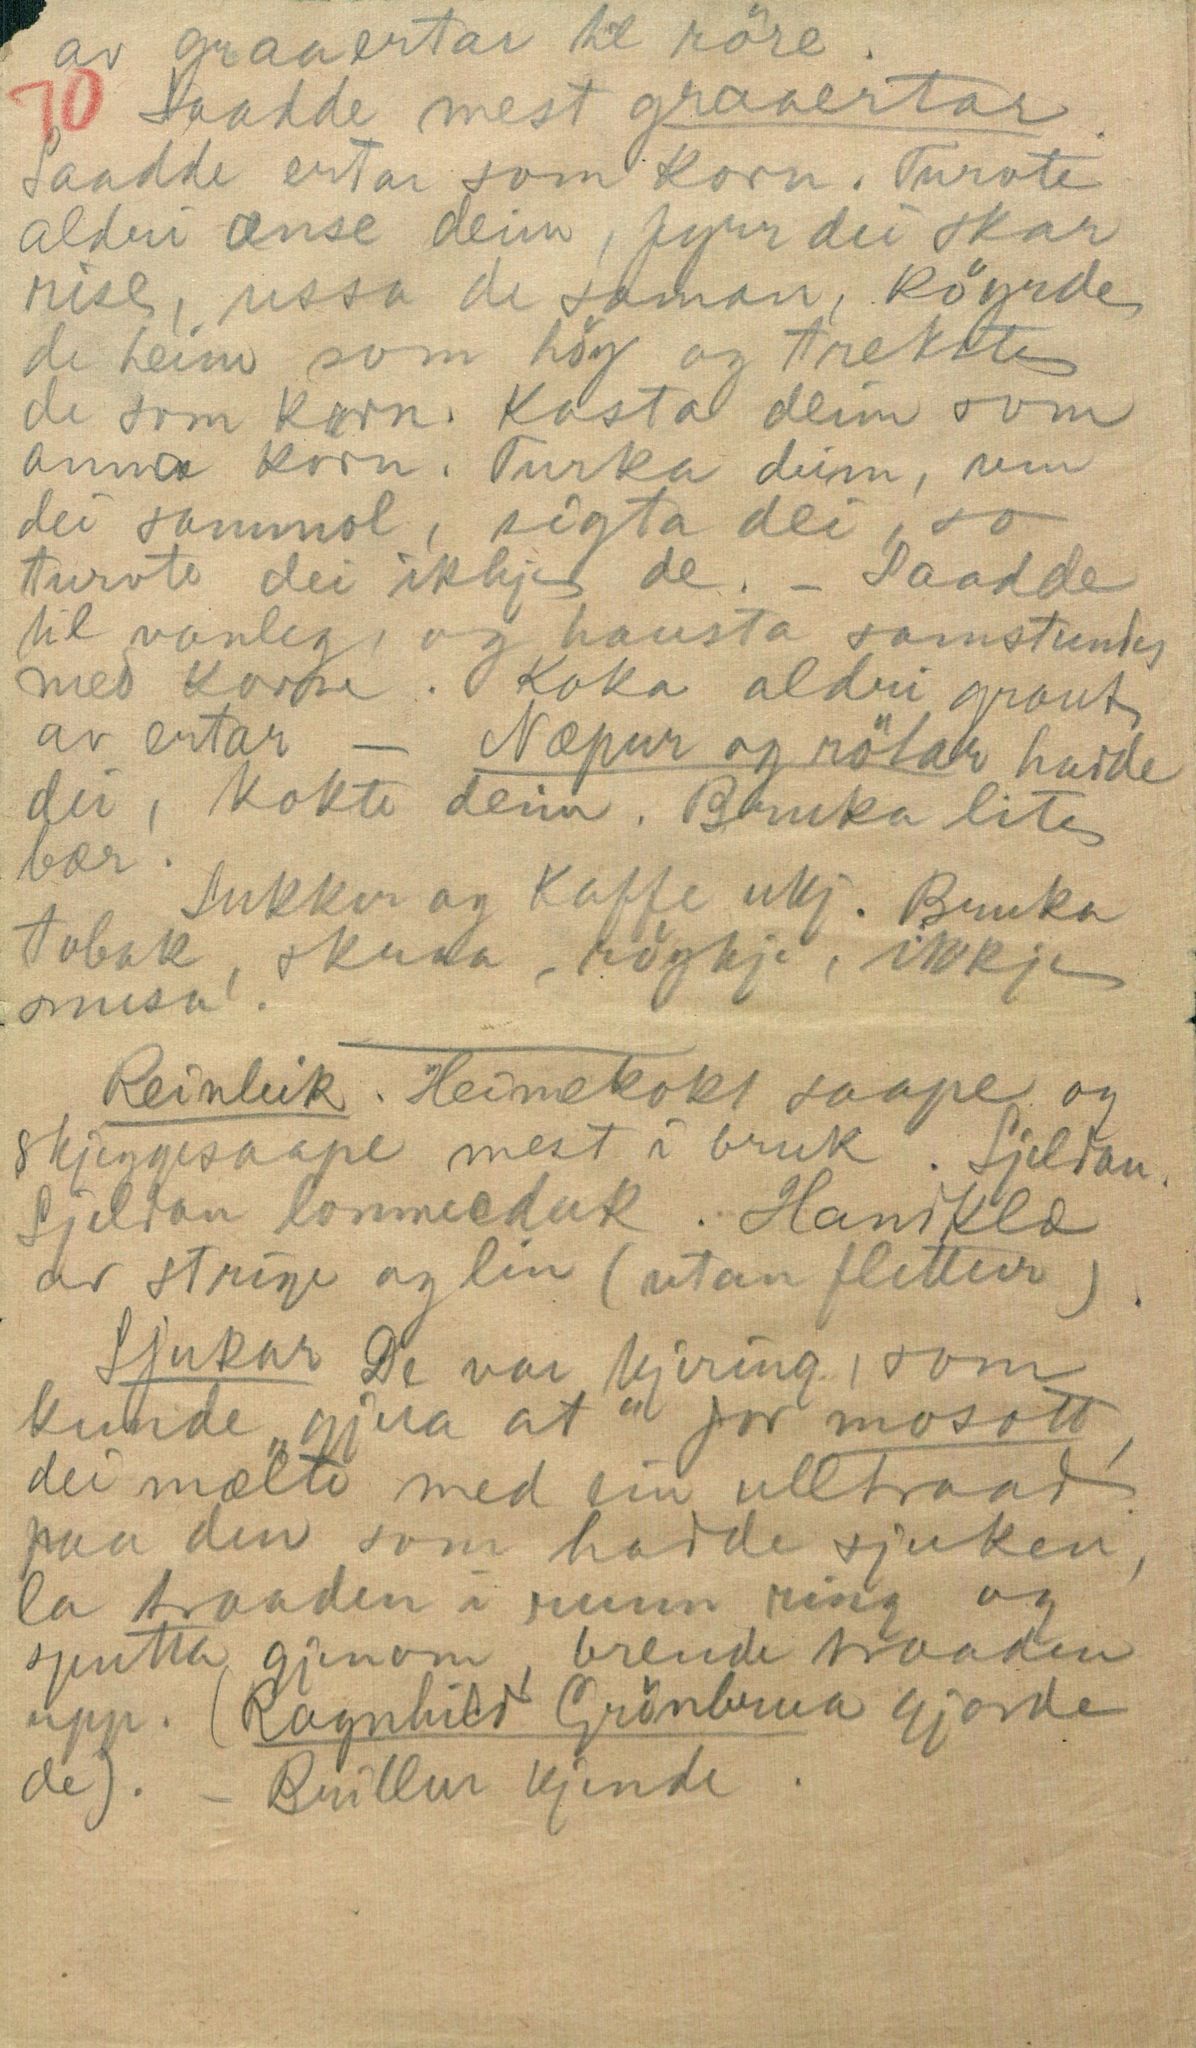 av graaertar til röre.
70 Saadde mest graaertar.
Saadde ertar som korn. Turvte
aldri ense deim, fyrr dei skar
rise, ussa de saman, köyrde
de heim som höy og trekkte
de som korn. Kasta deim som
anna korn. Turka deim, um
dei sammol, sigta dei, so
turvte dei ikkje de. – Saadde
til vanleg, og hausta samstundes
med korne. Koka aldri graut
av ertar – Næpur og rötar hadde
dei, kokte deim. Bruka lite
bær.
Sukker og Kaffe ikkj. Bruka
tobak, skraa, röykje, ikkje
snusa.
Reinleik. Heimekokt saape og
skjeggesaape mest i bruk. Sjeldan.
Sjeldan lommeduk. Handklæ
av strige og lin (utan flettur).
Sjukar De var kjering, som
kunde "gjera at" for mosott,
dei mælte med ein ulltraad
paa den som hadde sjuken,
la traaden i runn ring og
sputta gjenom, brende traaden
upp. (Ragnhild Grönbrua gjorde
de). – Brillur kjende.